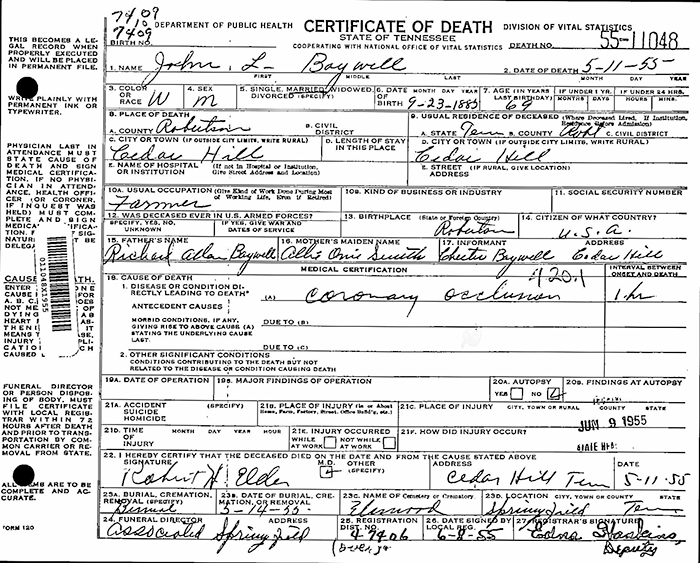 7409
10
7409
DEPARTMENT OF PUBLIC HEALTH
CERTIFICATE OF DEATH
DIVISION OF VITAL STATISTICS
STATE OF TENNESSEE
COOPERATING WITH NATIONAL OFFICE OF VITAL STATISTICS
BIRTH NO.
DEATH NO. 55-11048
THIS BECOMES A LEGAL RECORD WHEN
PROPERLY EXECUTED
AND WILL BE PLACED
IN PERMANENT FILE.
WRITE PLAINLY WITH
PERMANENT INK OR
TYPEWRITER.
PHYSICIAN LAST IN
ATTENDANCE MUST
STATE CAUSE OF
DEATH AND SIGN
MEDICAL CERTIFICATION.
IF NO PHYSICIAN IN ATTENDANCE,
HEALTH OFFICER (OR CORONER,
IF INQUEST WAS
HELD) MUST COMPLETE AND SIGN
03110482X1955
FUNERAL DIRECTOR
OR PERSON DISPOSING OF BODY, MUST
FILE CERTIFICATE
WITH LOCAL REGISTRAR WITHIN 72
HOURS AFTER DEATH
AND PRIOR TO TRANSPORTATION BY COMMON CARRIER OR REMOVAL FROM STATE.
ARE TO BE
COMPLETE AND ACCURATE.
FORM 120
1. NAME John L- Baywell
FIRST MIDDLE LAST
2. DATE OF DEATH 5-11-55
MONTH DAY YEAR
3. COLOR OR RACE W
4. SEX M
5. SINGLE, MARRIED, WIDOWED, DIVORCED (SPECIFY)
6. DATE OF BIRTH MONTH DAY YEAR 9-23-1885
7. AGE (IN YEARS LAST BIRTHDAY) 69
IF UNDER 1 YR. MONTHS DAYS
IF UNDER 24 HRS. HOURS MINS.
8. PLACE OF DEATH
A. COUNTY Robertson
B. CIVIL DISTRICT
9. USUAL RESIDENCE OF DECEASED (Where Deceased Lived, If Institution, Residence Before Admission)
A. STATE Tenn B. COUNTY Robt C. CIVIL DISTRICT
C. CITY OR TOWN (IF OUTSIDE CITY LIMITS, WRITE RURAL) Cedar Hill
D. LENGTH OF STAY IN THIS PLACE
D. CITY OR TOWN (IF OUTSIDE CITY LIMITS, WRITE RURAL) Cedar Hill
E. NAME OF HOSPITAL OR INSTITUTION (If not in Hospital or Institution, Give Street Address and Location)
E. STREET ADDRESS (IF RURAL, GIVE LOCATION)
10A. USUAL OCCUPATION (Give Kind of Work Done During Most of Working Life, Even if Retired) Farmer
10B. KIND OF BUSINESS OR INDUSTRY
11. SOCIAL SECURITY NUMBER
12. WAS DECEASED EVER IN U.S. ARMED FORCES?
SPECIFY, YES, NO, UNKNOWN
IF YES, GIVE WAR AND DATES OF SERVICE
13. BIRTHPLACE (State or Foreign Country) Robertson
14. CITIZEN OF WHAT COUNTRY? U.S.A.
15. FATHER'S NAME Richard Allan Baywell
16. MOTHER'S MAIDEN NAME Allis Onie Smith
17. INFORMANT Chester Baywell
ADDRESS Cedar Hill
MEDICAL CERTIFICATION
420.1
INTERVAL BETWEEN ONSET AND DEATH
18. CAUSE OF DEATH
1. DISEASE OR CONDITION DIRECTLY LEADING TO DEATH* (A) Coronary Occlusion 1 hr
ANTECEDENT CAUSES
MORBID CONDITIONS, IF ANY, GIVING RISE TO ABOVE CAUSE (A) STATING THE UNDERLYING CAUSE LAST.
DUE TO (B)
DUE TO (C)
2. OTHER SIGNIFICANT CONDITIONS
CONDITIONS CONTRIBUTING TO THE DEATH BUT NOT
RELATED TO THE DISEASE OR CONDITION CAUSING DEATH
19A. DATE OF OPERATION
19B. MAJOR FINDINGS OF OPERATION
20A. AUTOPSY YES NO
20B. FINDINGS OF AUTOPSY
21A. ACCIDENT SUICIDE HOMICIDE (SPECIFY)
21B. PLACE OF INJURY (In or About Home, Farm, Factory, Street, Office Build'g, etc.)
21C. PLACE OF INJURY CITY, TOWN OR RURAL COUNTY STATE
JUN 9 1955
21D. TIME OF INJURY MONTH DAY YEAR HOUR
21E. INJURY OCCURRED WHILE AT WORK NOT WHILE AT WORK
21F. HOW DID INJURY OCCUR?
22. I HEREBY CERTIFY THAT THE DECEASED DIED ON THE DATE AND FROM THE CAUSE STATED ABOVE
SIGNATURE Robert H. Elder
M.D. OTHER (SPECIFY)
ADDRESS Cedar Hill Tenn
DATE SIGNED 5-11-55
23A. BURIAL, CREMATION, REMOVAL (SPECIFY) Burial
23B. DATE OF BURIAL, CREMATION, OR REMOVAL 5-14-55
23C. NAME of Cemetery or Crematory Elmwood
23D. LOCATION CITY, TOWN OR COUNTY STATE Springfield Tenn
24. FUNERAL DIRECTOR ADDRESS Associated Springfield
25. REGISTRATION DIST. NO. 47406
26. DATE SIGNED BY LOCAL REG. 6-8-55
27. REGISTRAR'S SIGNATURE Edna Haskins,
Deputy